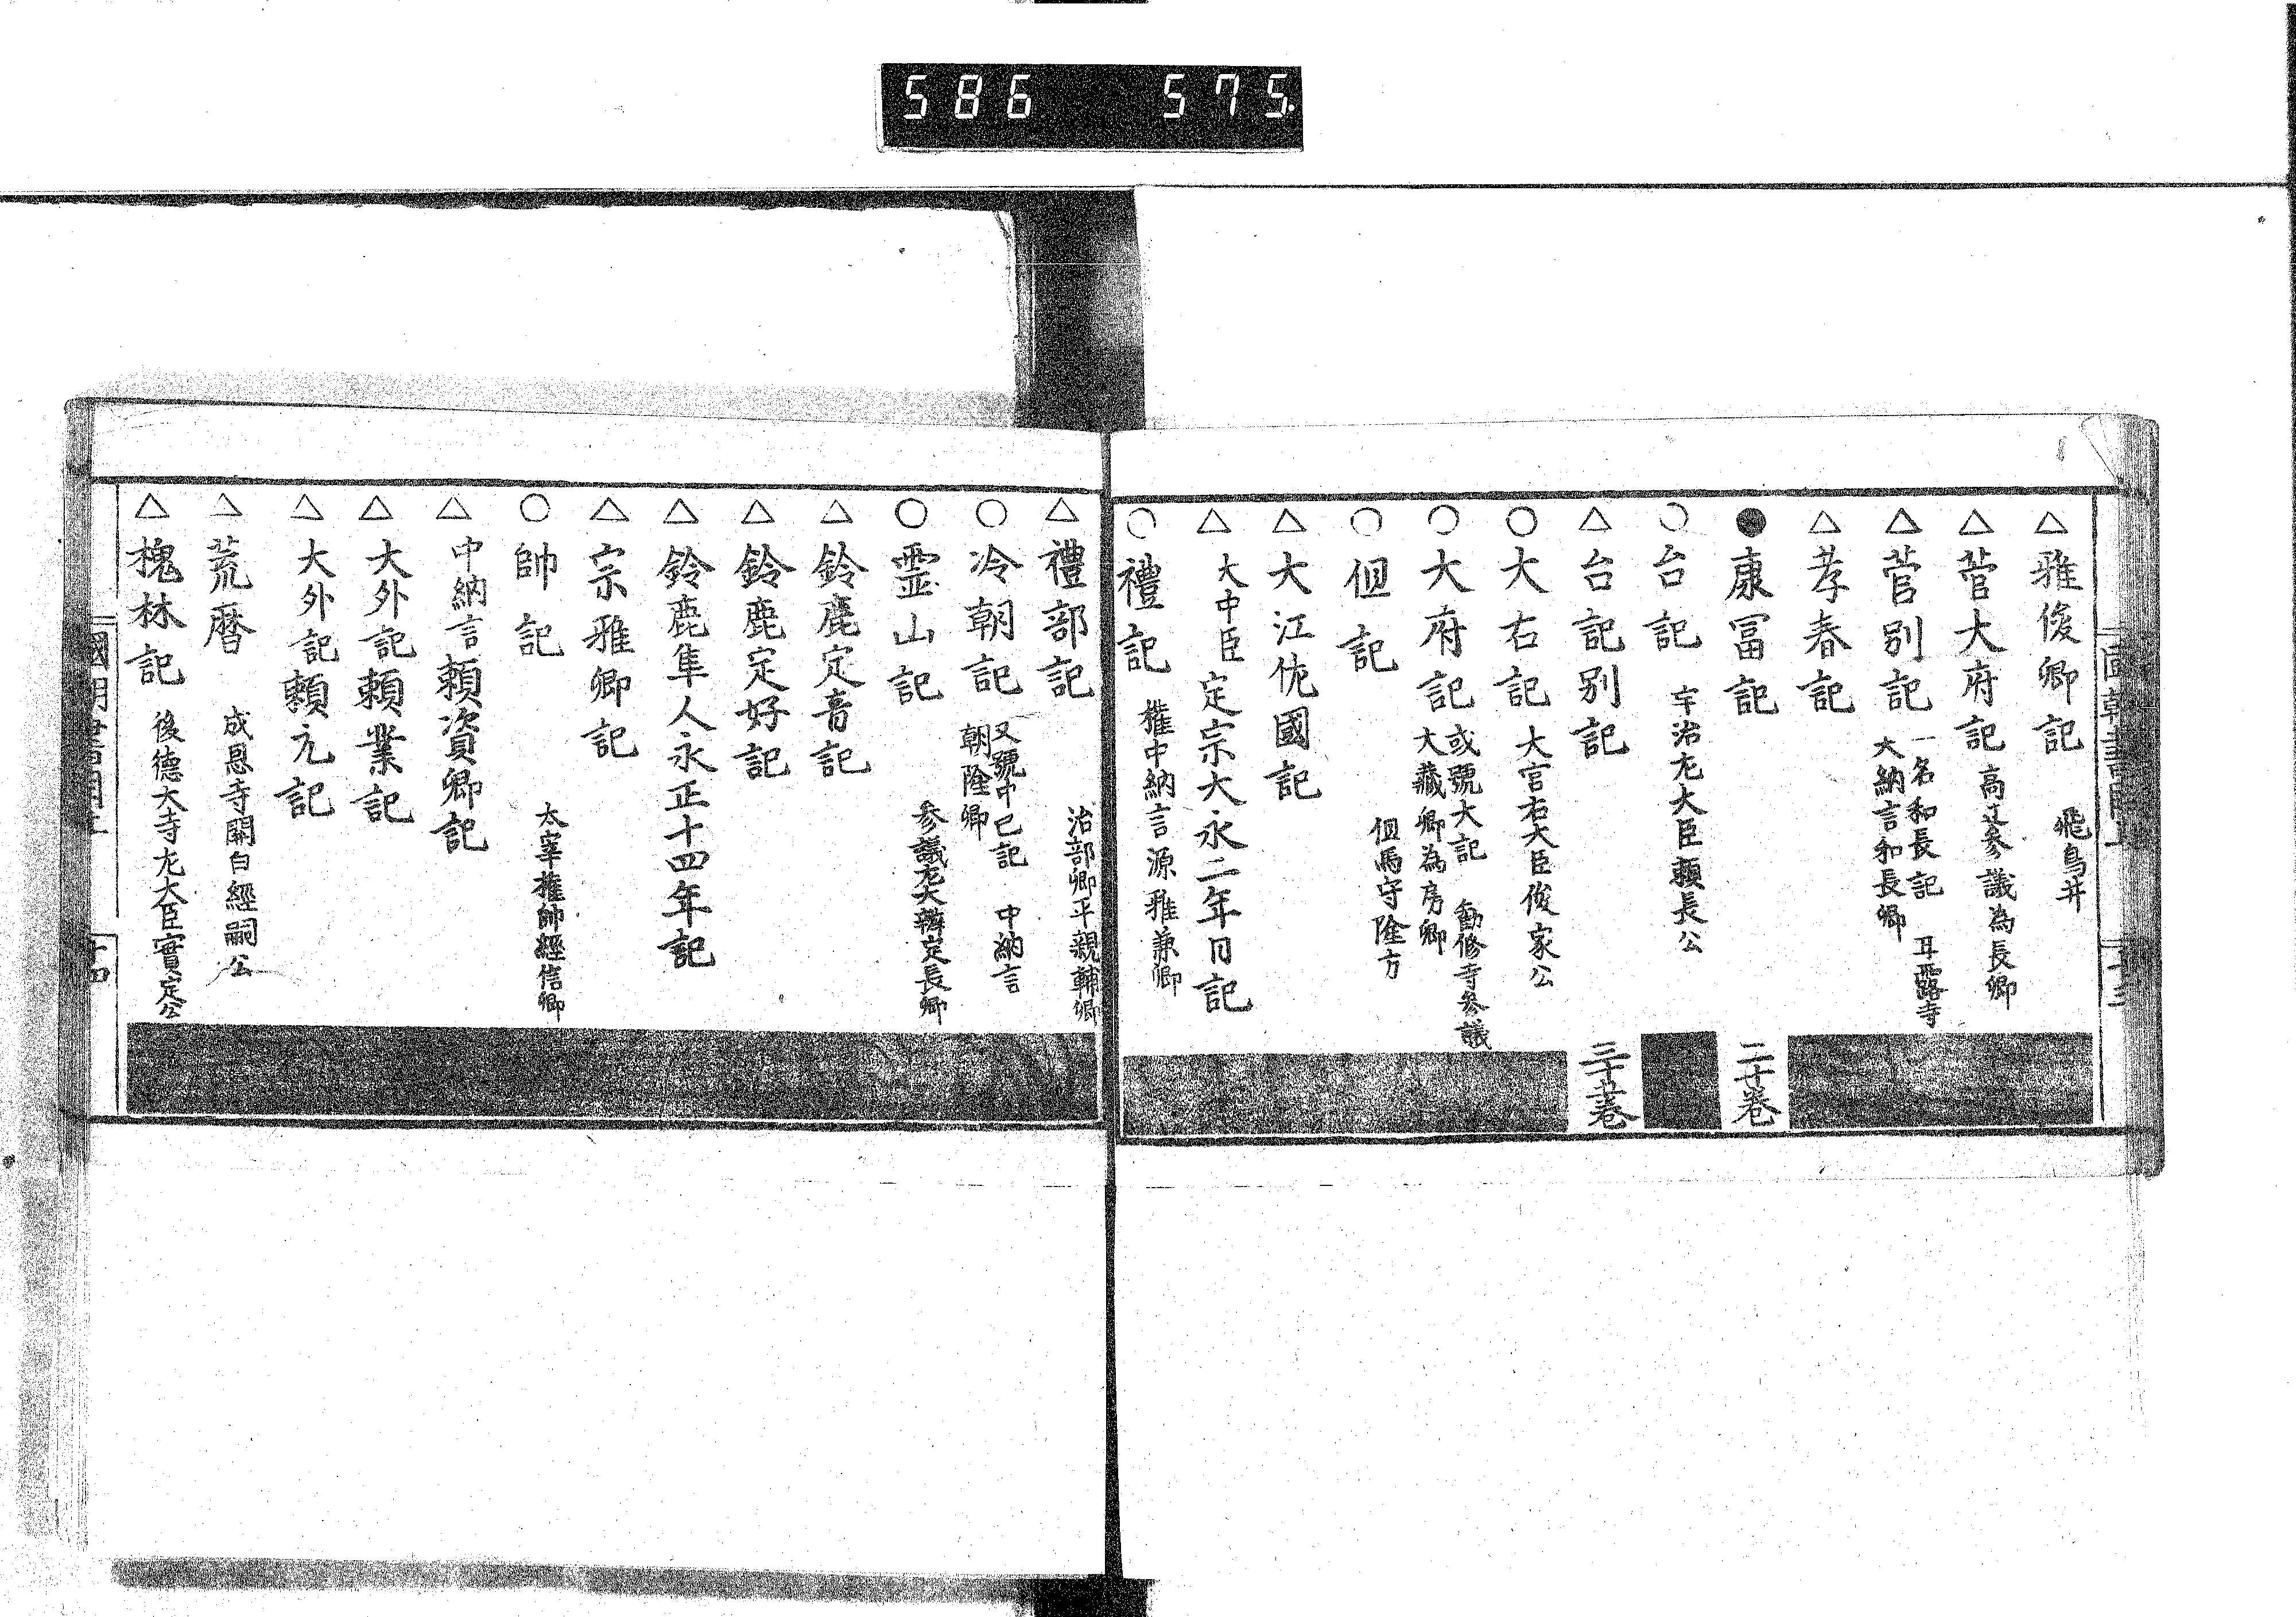 586 575.
△雅俊卿記 飛鳥井
△菅大府記 高辻参議為長卿
△菅別記 一名和長記 耳露寺
大納言和長卿
△孝春記
●康冨記 二十卷
○台記 宇治左大臣頼長公
△台記別記 三十五卷
○大右記 大宮右大臣俊家公
○大府記 或號大記 勧修寺参議
大藏卿為房卿
○但記 但馬守隆方
△大江佐國記
△大中臣定宗大永二年日記
○禮記 権中納言源雅兼卿
△禮部記 治部卿平親輔卿
○冷朝記 又號中巳記 中納言
朝隆卿
○霊山記 参議左大辨定長卿
△鈴鹿定音記
△鈴鹿定好記
△鈴鹿隼人永正十四年記
△宗雅卿記
○帥記 太宰権帥經信卿
△中納言頼資卿記
△大外記頼業記
△大外記頼元記
△荒暦 成恩寺關白經嗣公
△槐林記 後徳大寺左大臣實定公
十四